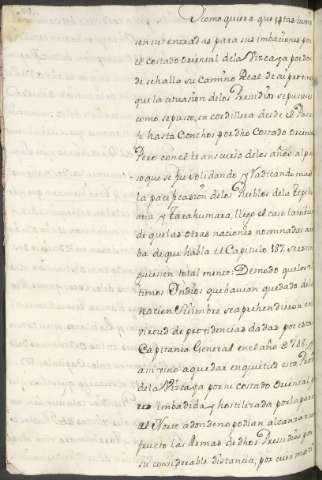 Y como quiera que estas naciones
en sus entradas para sus imbaciones por
el costado oriental de la Vizcaya por don
de se halla su Camino Real de aqui era
que la situacion de los Presidios se pusiese
como se puso, en cordillera desde el Pasa
hasta Conchos por dho Costado Oriental
Pero con el transcurso de los años al pa
so que se fue solidando y radicando mas
la pacificacion de los Pueblos de la Tepehu
ana y Tarahumara, llego el caso
de que las otras naciones nominadas arri
ba de que habla el Capitulo 187 se extin
guiesen total mente: De modo que los ul
timos Indios que havian quedado de la
nacion se aprehendieron en
virtud de providencias dadas por esta
Capitania General en el año de 1748, y
vino a quedar en quietud esta Prov
de la Vizcaya por su costado Oriental, p
ero imbadida y hostilizada por la parte
del Norte a donde no podian alcanzar con
fruto las Armas de dhos Presidios por
su considerable distancia; por cuio moti